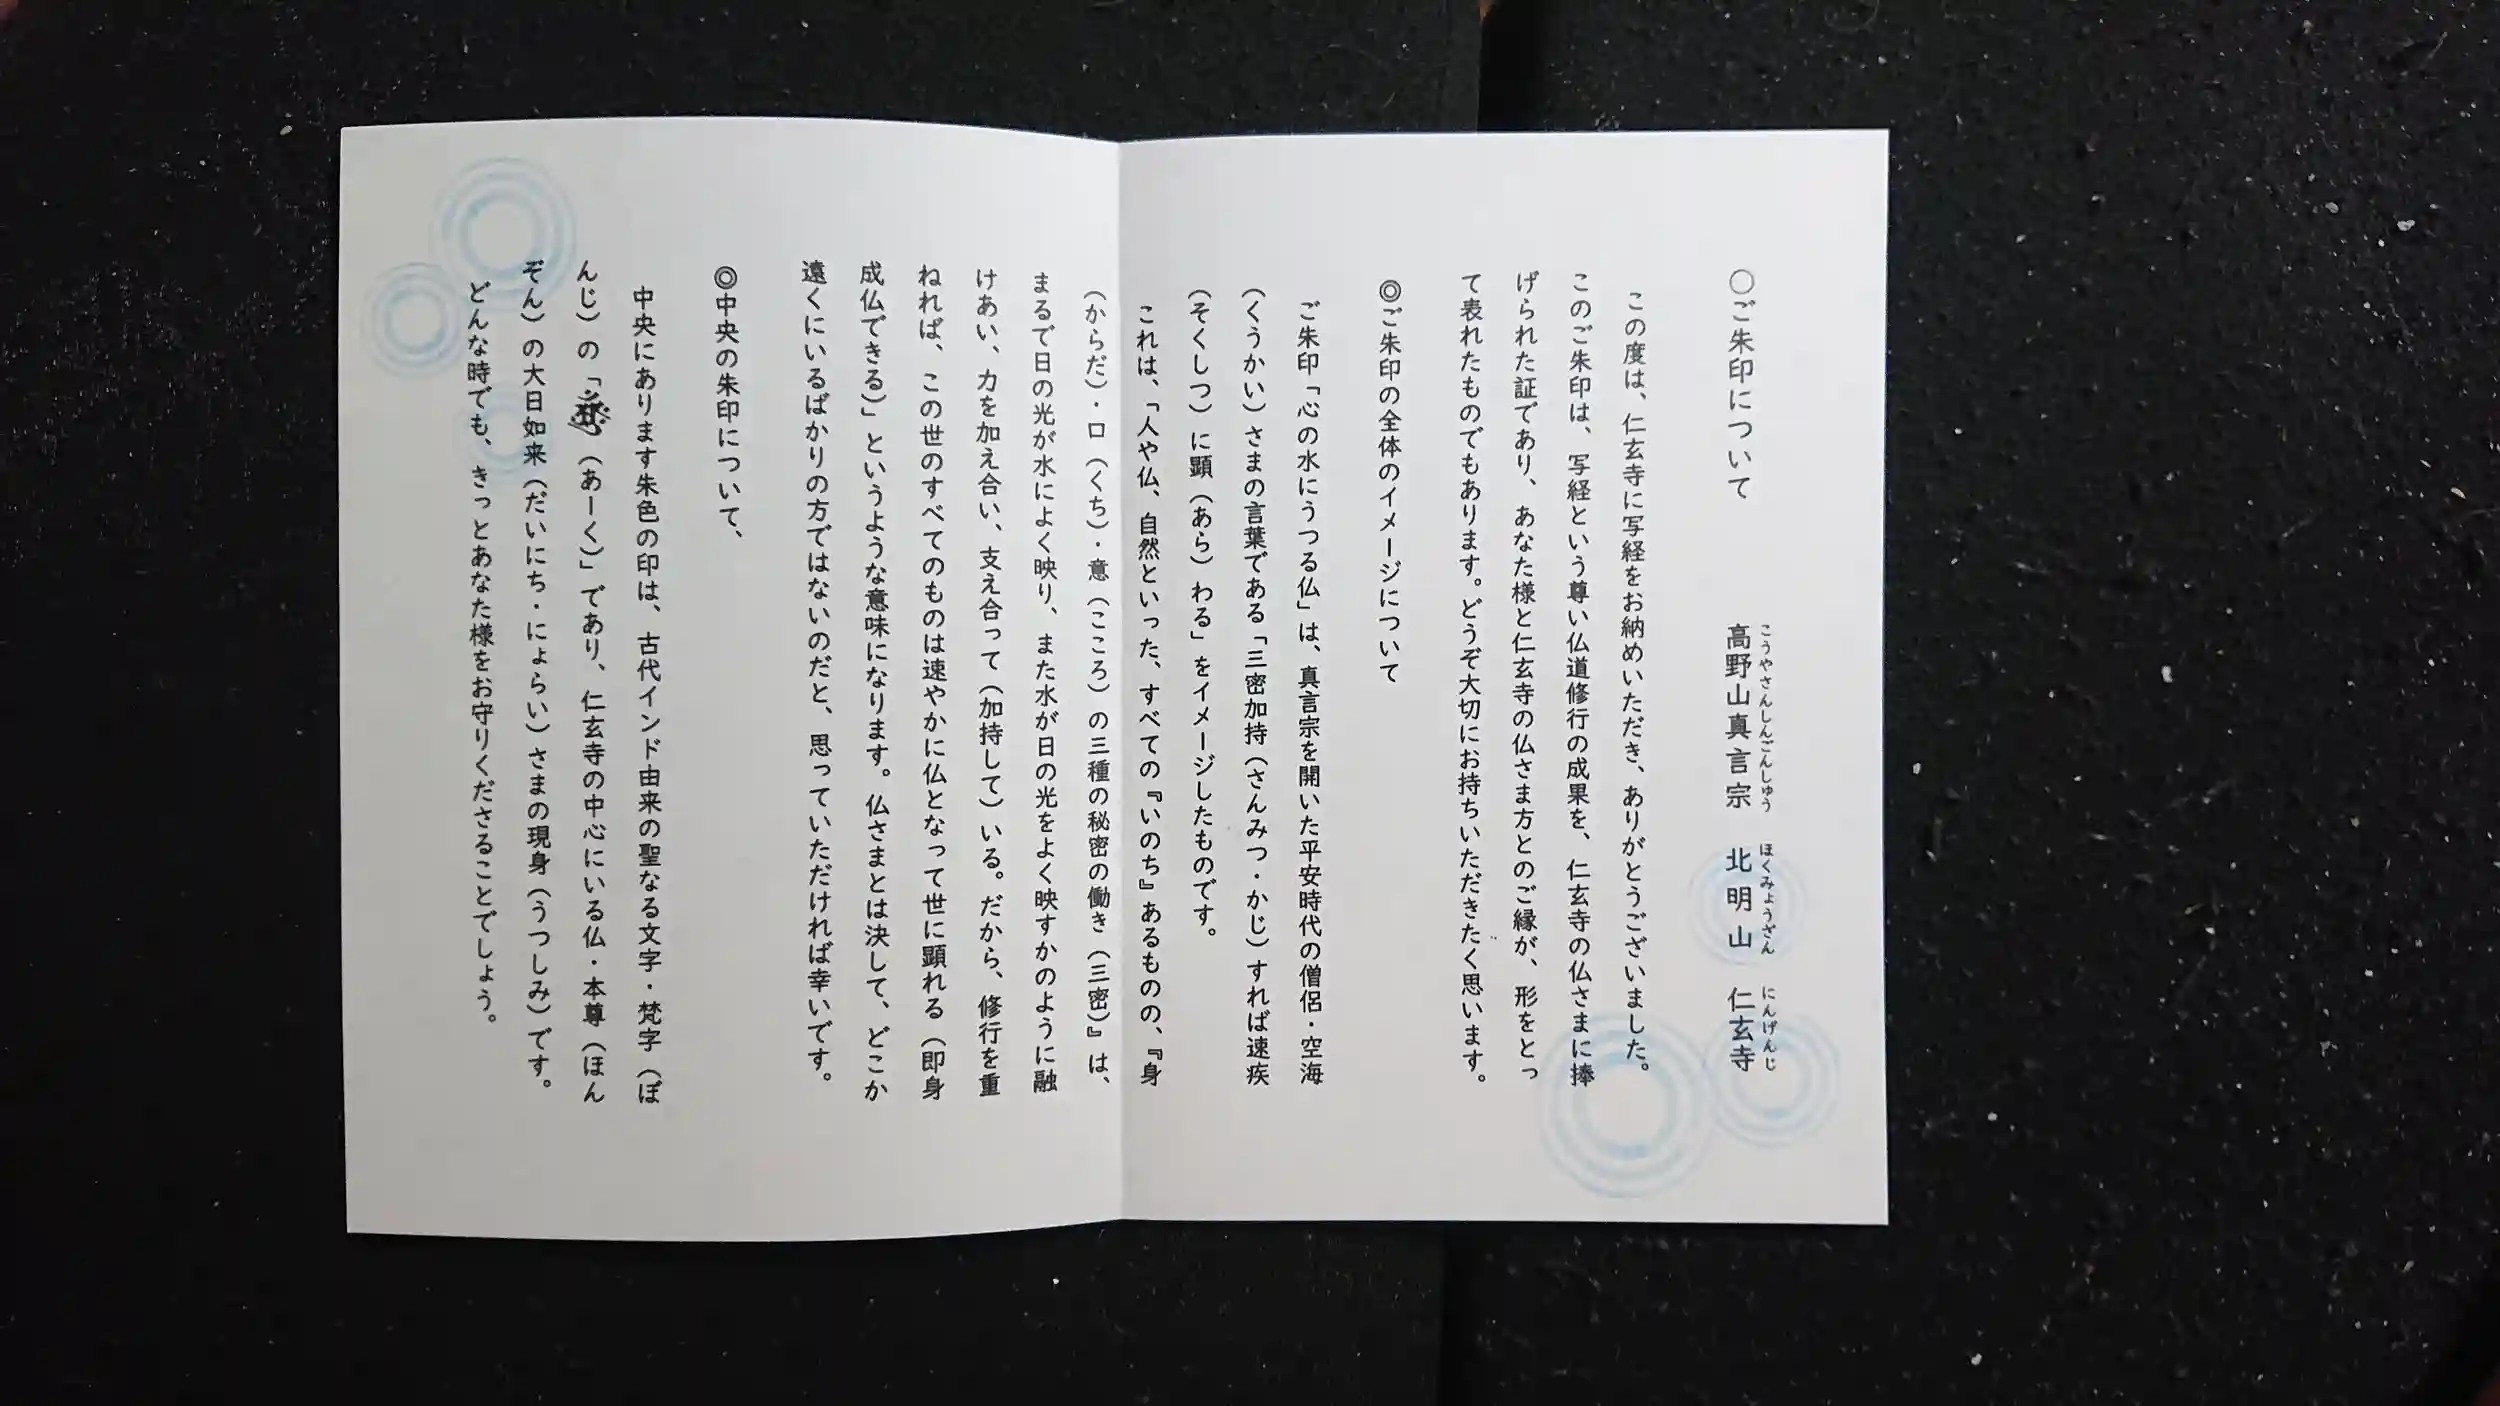 〇ご朱印について
高野山真言宗 北明山 仁玄寺
こうやさんしんごんしゅう ほくみょうざん にんげんじ
この度は、仁玄寺に写経をお納めいただき、ありがとうございました。
このご朱印は、写経という尊い仏道修行の成果を、仁玄寺の仏さまに捧
げられた証であり、あなた様と仁玄寺の仏さま方とのご縁が、形をとっ
て表れたものでもあります。どうぞ大切にお持ちいただきたく思います。
◎ご朱印の全体のイメージについて
ご朱印「心の水にうつる仏」は、真言宗を開いた平安時代の僧侶・空海
(くうかい)さまの言葉である「三密加持(さんみつ・かじ)すれば速疾
(そくしつ)に顕(あら)わる」をイメージしたものです。
これは、「人や仏、自然といった、すべての『いのち』あるものの、『身
(からだ)・口(くち)・意(こころ)の三種の秘密の働き(三密)』は、
まるで日の光が水によく映り、また水が日の光をよく映すかのように融
けあい、力を加え合い、支え合って(加持して)いる。だから、修行を重
ねれば、この世のすべてのものは速やかに仏となって世に顕れる(即身
成仏できる)」というような意味になります。仏さまとは決して、どこか
遠くにいるばかりの方ではないのだと、思っていただければ幸いです。
◎中央の朱印について、
中央にあります朱色の印は、古代インド由来の聖なる文字・梵字(ぼ
んじ)の「 (あーく)」であり、仁玄寺の中心にいる仏・本尊(ほん
ぞん)の大日如来(だいにち・にょらい)さまの現身(うつしみ)です。
どんな時でも、きっとあなた様をお守りくださることでしょう。